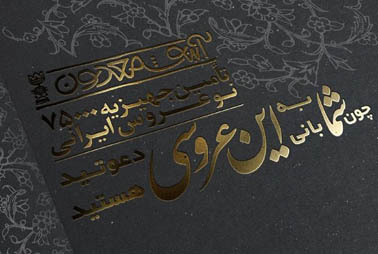 تأمین جهیزیه ۷۵۰۰۰
نوعروس ایرانی
به این عروسی دعوتید
چون شما بانی هستید